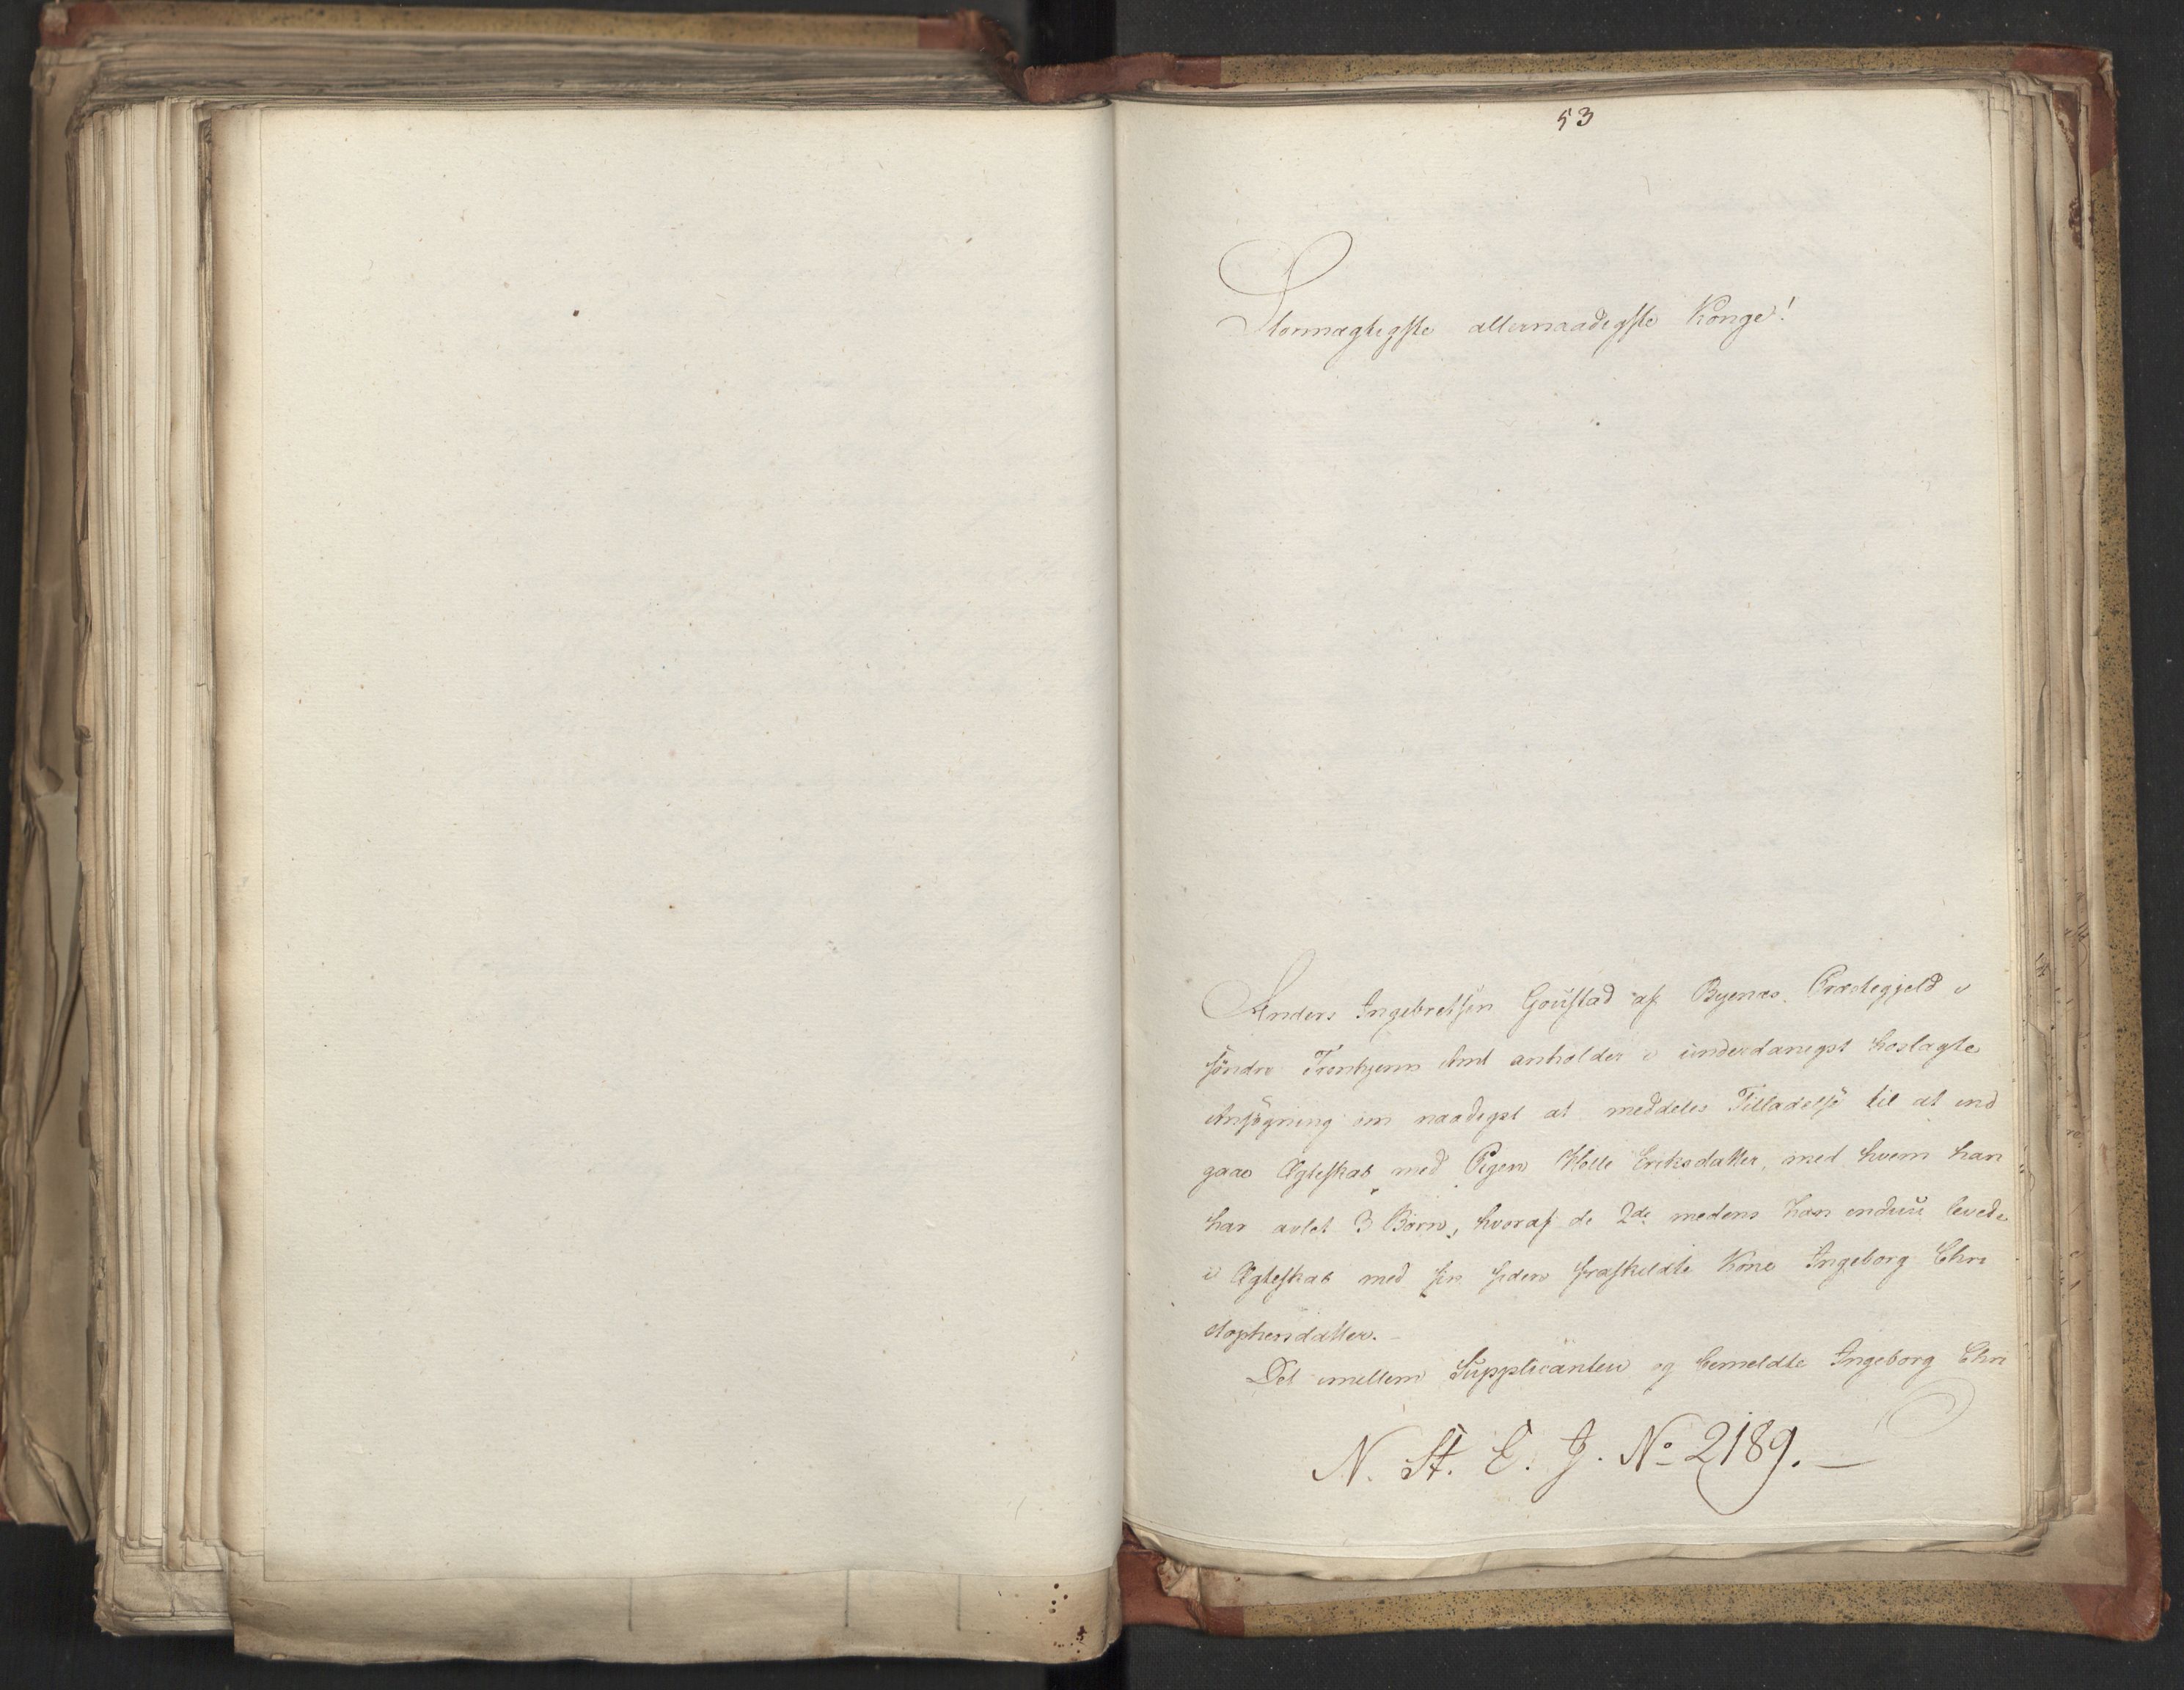 53
Stormægtigste allernaadigste Konge!
Anders Ingebretsen Goustad af Byenæs Præstegjeld i
söndre Tronhjems Amt anholder i underdanigst hoslagte
Ansögning om naadigst at meddeles Tilladelse til at ind
gaae Ægteskab med Pigen Eriksdatter, med hvem han
har avlet 3 Börn, hvoraf de 2de medens han endnu levede
i Ægteskab med sin siden fraskildte Kone Ingeborg Chri
stophersdatter.
Det imellem Supplicanten og bemeldte Ingeborg Chri
N. St. E. J. No 2189.